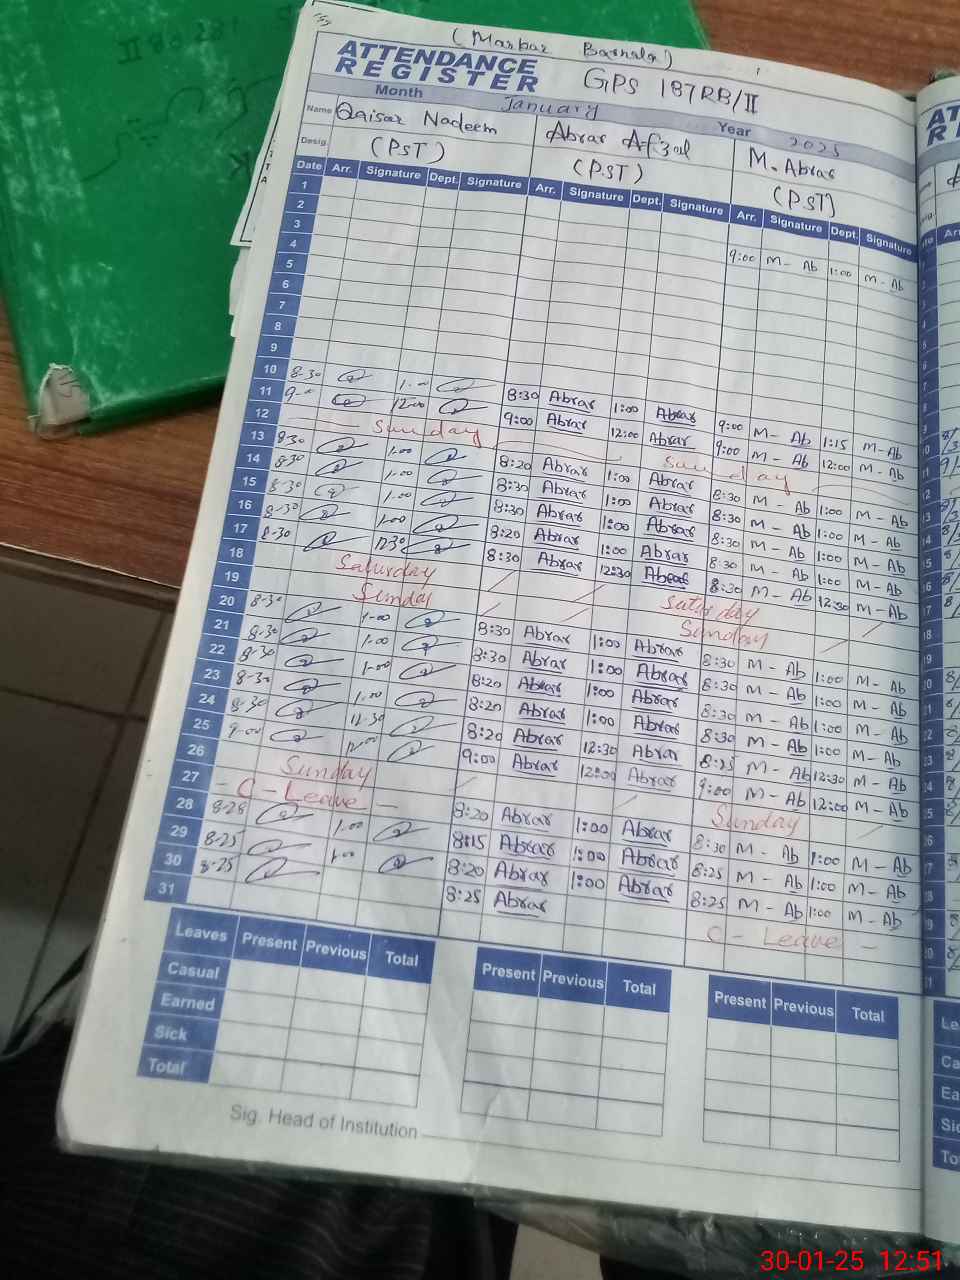 (Marbar Barnala)
ATTENDANCE
REGISTER
GPS 187RB/II
Month January Year 2025
Name Qaisar Nadeem Abrar Afzal M. Abrar
Desig. (PST) (PST) (PST)
Date Arr. Signature Dept. Signature Arr. Signature Dept. Signature Arr. Signature Dept. Signature
1
2
3 9:00 M- Ab 1:00 M-Ab
4
5
6
7
8
9
10 8-30 1-00 8:30 Abrar 1:00 Abrar 9:00 M- Ab 1:15 M-Ab
11 9-00 12-00 9:00 Abrar 12:00 Abrar 9:00 M- Ab 12:00 M-Ab
12 Sunday Sunday
13 8-30 1-00 8:20 Abrar 1:00 Abrar 8:30 M- Ab 1:00 M-Ab
14 8-30 1-00 8:30 Abrar 1:00 Abrar 8:30 M- Ab 1:00 M-Ab
15 8-30 1-00 8:30 Abrar 1:00 Abrar 8:30 M- Ab 1:00 M-Ab
16 8-30 1-00 8:20 Abrar 1:00 Abrar 8:30 M- Ab 1:00 M-Ab
17 8-30 12-30 8:30 Abrar 12:30 Abrar 8:30 M- Ab 12:30 M-Ab
18 Saturday Saturday
19 Sunday Sunday
20 8-30 1-00 8:30 Abrar 1:00 Abrar 8:30 M- Ab 1:00 M-Ab
21 8-30 1-00 8:30 Abrar 1:00 Abrar 8:30 M- Ab 1:00 M-Ab
22 8-30 1-00 8:20 Abrar 1:00 Abrar 8:30 M- Ab 1:00 M-Ab
23 8-30 1-00 8:20 Abrar 1:00 Abrar 8:30 M- Ab 1:00 M-Ab
24 8-30 12-30 8:20 Abrar 12:30 Abrar 8:25 M- Ab 12:30 M-Ab
25 9-00 12-00 9:00 Abrar 12:00 Abrar 9:00 M- Ab 12:00 M-Ab
26 Sunday Sunday
27 - C-Leave - 8:20 Abrar 1:00 Abrar 8:30 M- Ab 1:00 M-Ab
28 8-28 1-00 8:15 Abrar 1:00 Abrar 8:25 M- Ab 1:00 M-Ab
29 8-25 1-00 8:20 Abrar 1:00 Abrar 8:25 M- Ab 1:00 M-Ab
30 8-25 8:25 Abrar C-Leave -
31
Leaves Present Previous Total Present Previous Total Present Previous Total
Casual
Earned
Sick
Total
Sig. Head of Institution
30-01-25 12:51